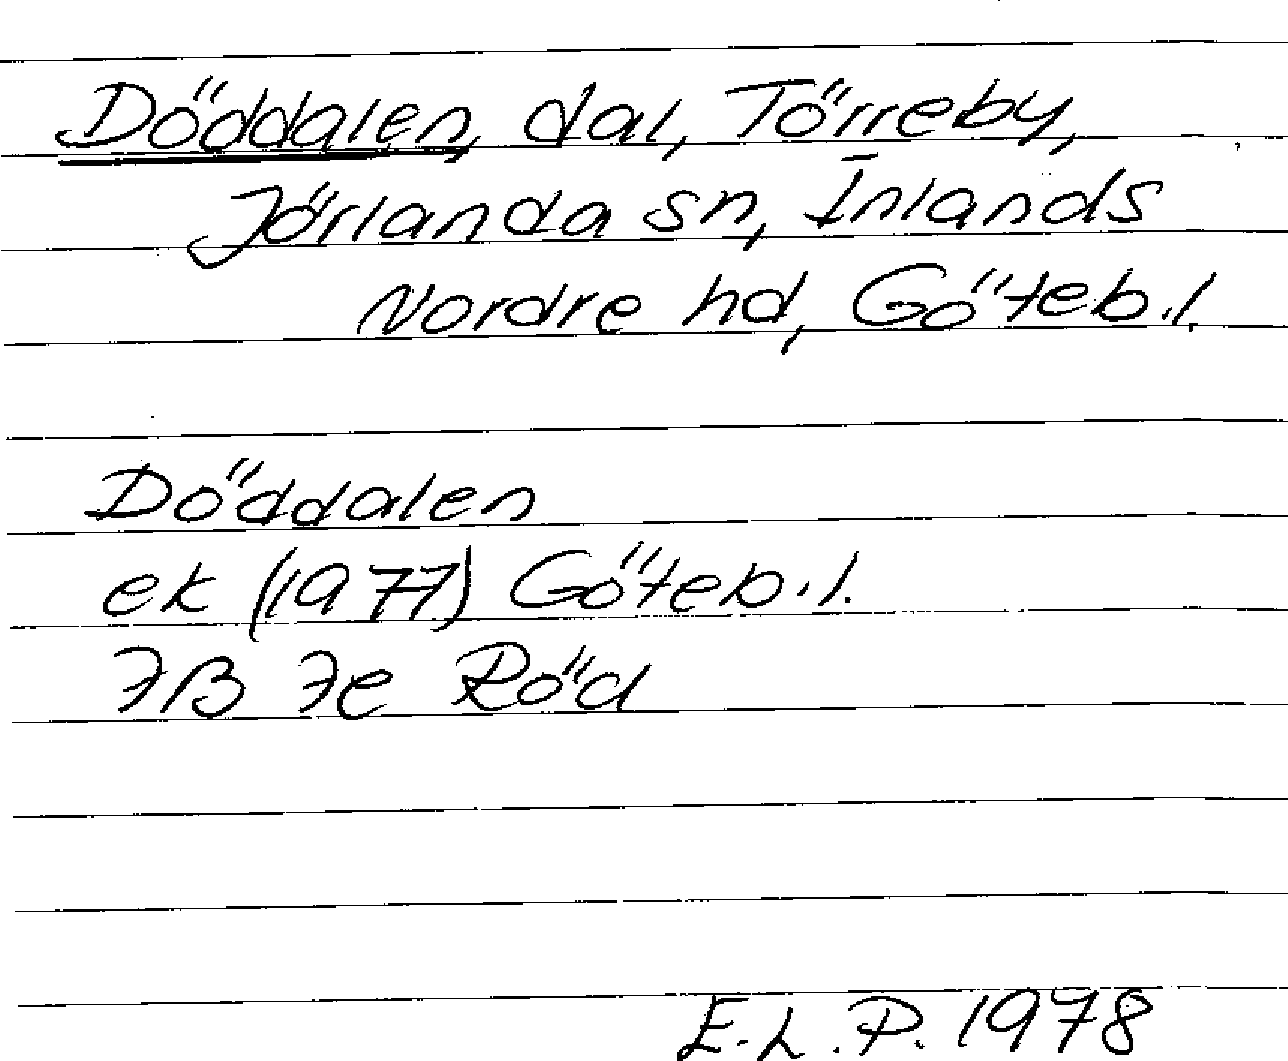 Döddalen, dal, Törreby,
Jörlanda sn, Inlands
Nordre hd, Göteb.l.
Döddalen
ek (1977) Göteb.l.
7B 7e Röd
E.L.P. 1978